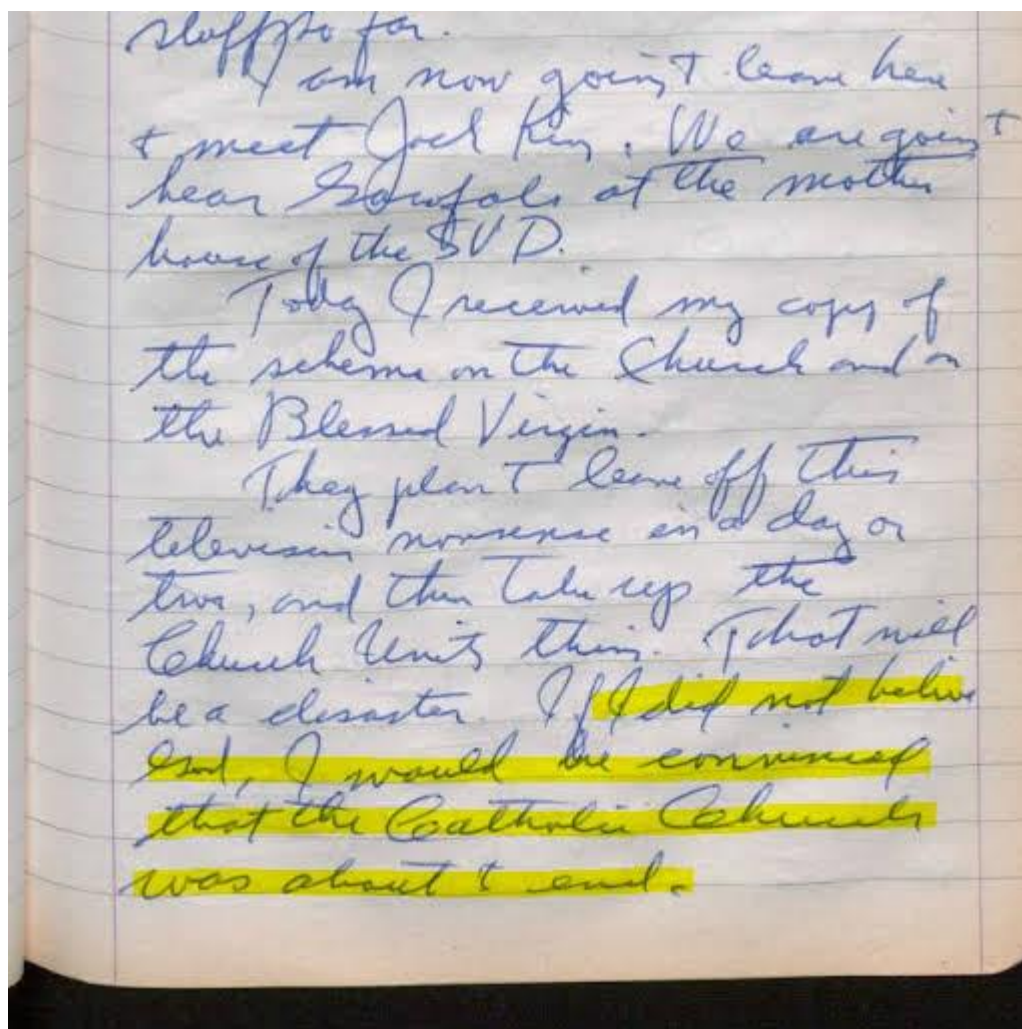 stuff so far.
I am now going t leave here
t meet Jack King. We are going t
hear Garofalo at the mother
house of the SVD.
Today I received my copy of
the schema on the Church and on
the Blessed Virgin.
They plan t leave off this
television nonsense in a day or
two, and then take up the
Church Unity thing. That will
be a disaster. If I did not believe
God, I would be convinced
that the Catholic Church
was about t end.